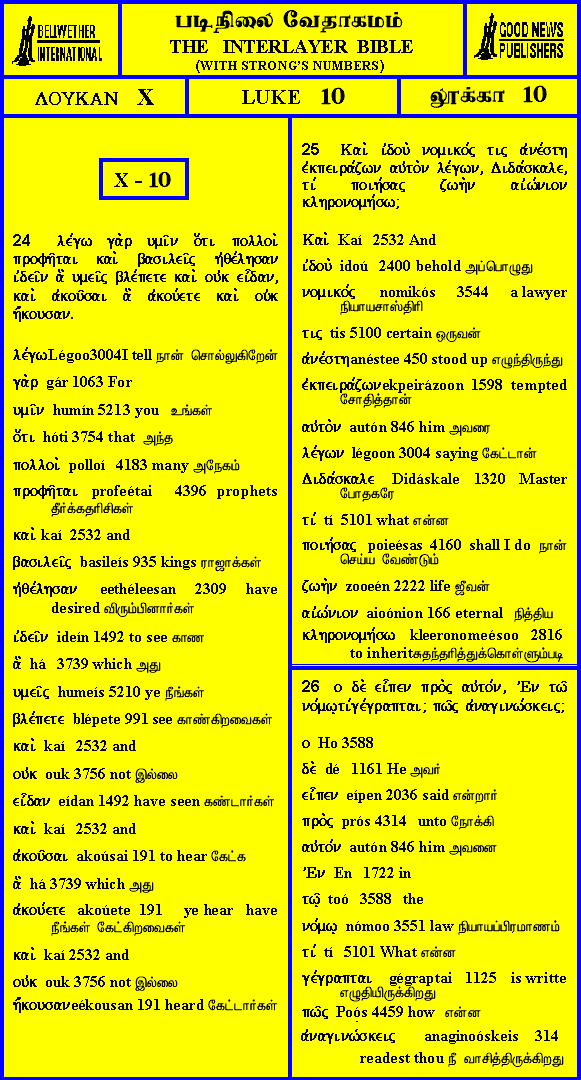 BELLWETHER
INTERNATIONAL
படிநிலை வேதாகமம்
THE INTERLAYER BIBLE
(WITH STRONG'S NUMBERS)
GOOD NEWS
PUBLISHERS
ΛΟΥΚΑΝ X
LUKE 10
லூக்கா 10
X - 10
24 λέγω γὰρ υμῖν ὅτι πολλοὶ
προφῆται καὶ βασιλεῖς ἠθέλησαν
ἰδεῖν ἃ υμεῖς βλέπετε καὶ οὐκ εἶδαν,
καὶ ἀκοῦσαι ἃ ἀκούετε καὶ οὐκ
ἤκουσαν.
λέγωLégoo3004I tell நான் சொல்லுகிறேன்
γὰρ gár 1063 For
υμῖν humín 5213 you உங்கள்
ὅτι hóti 3754 that அந்த
πολλοὶ polloí 4183 many அநேகம்
προφῆται profeétai 4396 prophets
தீர்க்கதரிசிகள்
καὶ kaí 2532 and
βασιλεῖς basileís 935 kings ராஜாக்கள்
ἠθέλησαν eethéleesan 2309 have
desired விரும்பினார்கள்
ἰδεῖν ideín 1492 to see காண
ἃ há 3739 which அது
υμεῖς humeís 5210 ye நீங்கள்
βλέπετε blépete 991 see காண்கிறவைகள்
καὶ kaí 2532 and
οὐκ ouk 3756 not இல்லை
εἶδαν eídan 1492 have seen கண்டார்கள்
καὶ kaí 2532 and
ἀκοῦσαι akoúsai 191 to hear கேட்க
ἃ há 3739 which அது
ἀκούετε akoúete 191 ye hear have
நீங்கள் கேட்கிறவைகள்
καὶ kaí 2532 and
οὐκ ouk 3756 not இல்லை
ἤκουσανeékousan 191 heard கேட்டார்கள்
25 Καὶ ἰδοὺ νομικός τις ἀνέστη
ἐκπειράζων αὐτὸν λέγων, Διδάσκαλε,
τί ποιήσας ζωὴν αἰώνιον
κληρονομήσω;
Καὶ Kaí 2532 And
ἰδοὺ idoú 2400 behold அப்பொழுது
νομικός nomikós 3544 a lawyer
நியாயசாஸ்திரி
τις tis 5100 certain ஒருவன்
ἀνέστηanéstee 450 stood up எழுந்திருந்து
ἐκπειράζωνekpeirázoon 1598 tempted
சோதித்தான்
αὐτὸν autón 846 him அவரை
λέγων légoon 3004 saying கேட்டான்
Διδάσκαλε Didáskale 1320 Master
போதகரே
τί tí 5101 what என்ன
ποιήσας poieésas 4160 shall I do நான்
செய்ய வேண்டும்
ζωὴν zooeén 2222 life ஜீவன்
αἰώνιον aioónion 166 eternal நித்திய
κληρονομήσω kleeronomeésoo 2816
to inheritசுதந்தரித்துக்கொள்ளும்படி
26 ο δὲ εἶπεν πρὸς αὐτόν, Ἐν τῶ
νόμῳτίγέγραπται; πῶς ἀναγινώσκεις;
ο Ho 3588
δὲ dé 1161 He அவர்
εἶπεν eípen 2036 said என்றார்
πρὸς prós 4314 unto நோக்கி
αὐτόν autón 846 him அவனை
Ἐν En 1722 in
τῷ toó 3588 the
νόμῳ nómoo 3551 law நியாயப்பிரமாணம்
τί tí 5101 What என்ன
γέγραπται gégraptai 1125 is writte
எழுதியிருக்கிறது
πῶς Poós 4459 how என்ன
ἀναγινώσκεις anaginoóskeis 314
readest thou நீ வாசித்திருக்கிறது